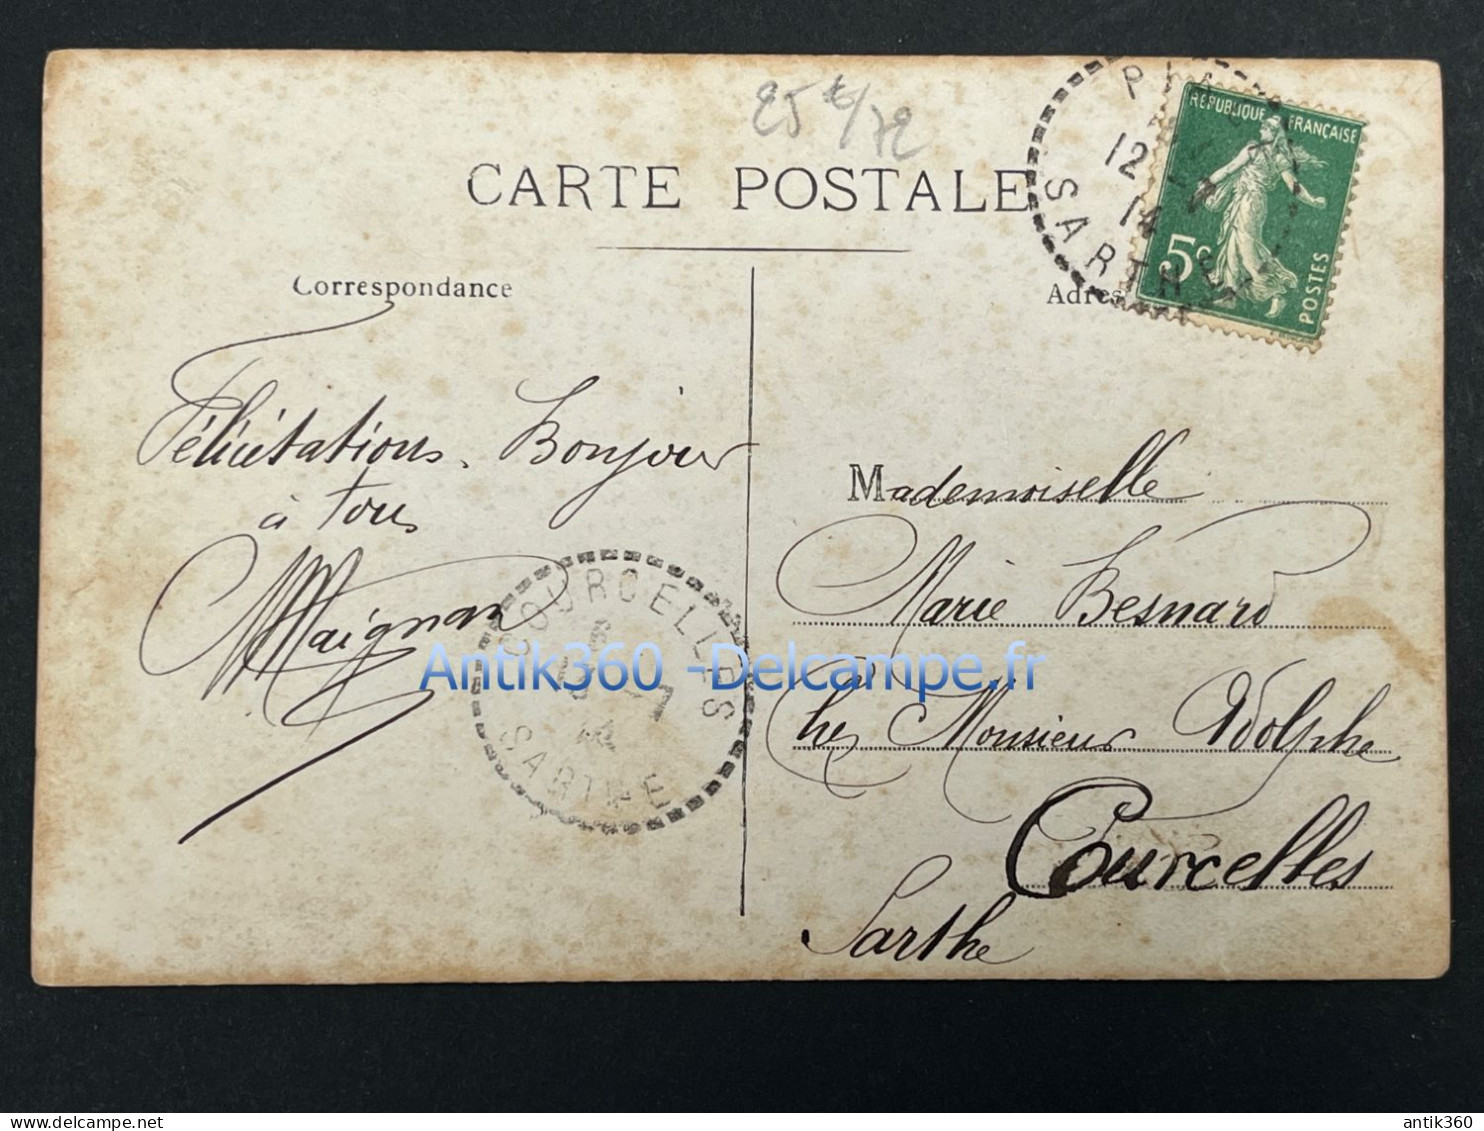 25 €/72
CARTE POSTALE
Correspondance
Adres
RÉPUBLIQUE FRANÇAISE
5c
POSTES
12
14
SARTHE
Félicitations. Bonjour
à tous
Maignan
COURCELLES
14
SARTHE
Mademoiselle
Marie Besnard
Chez Monsieur Adolphe
Courcelles
Sarthe
Antik360 -Delcampe.fr
delcampe.net
antik360